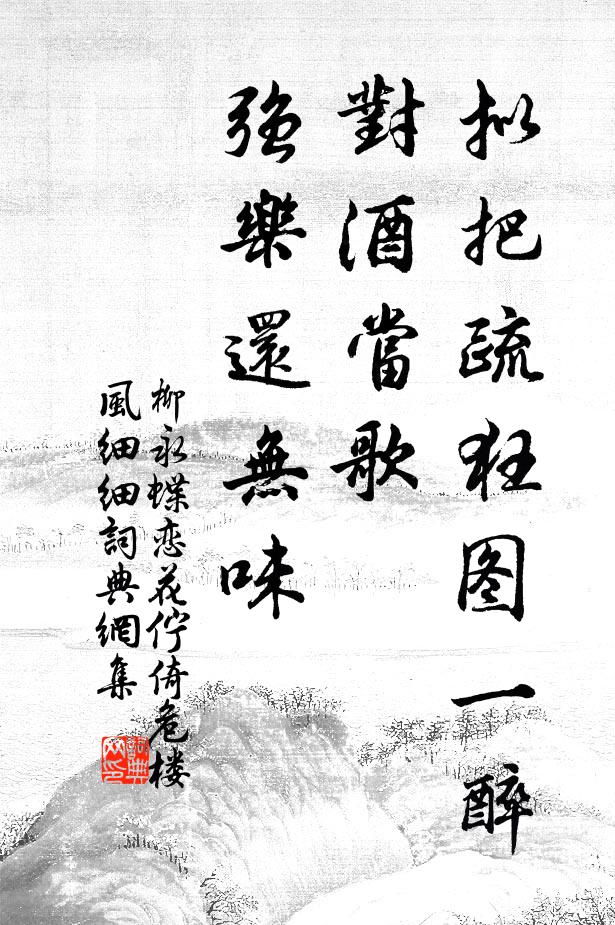 拟把疏狂图一醉
對酒當歌
強樂還無味
柳永蝶恋花佇倚危楼
風細細詞典網集
詞典网印